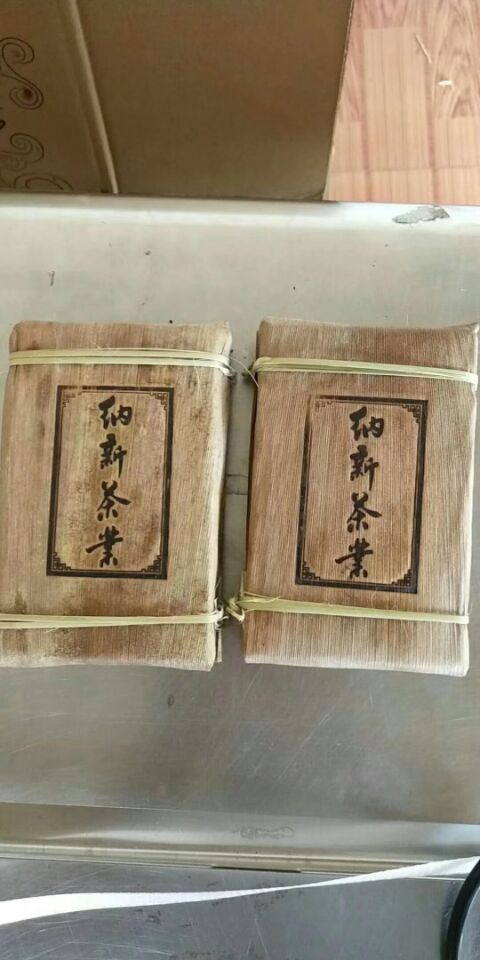 纳新茶業
纳新茶業